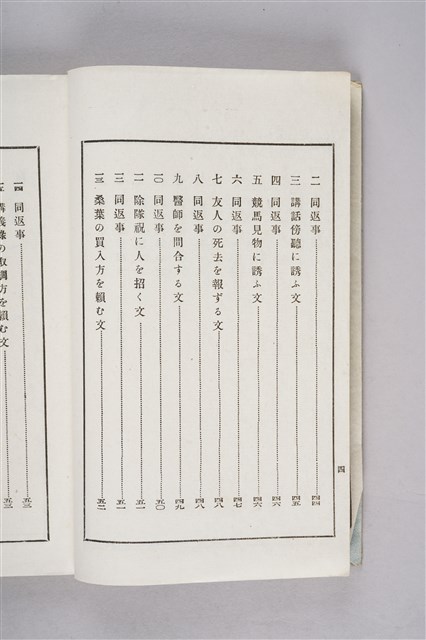 四
二 同返事……四四
三 講話傍聽に誘ふ文……四五
四 同返事……四六
五 競馬見物に誘ふ文……四六
六 同返事……四七
七 友人の死去を報ずる文……四八
八 同返事……四八
九 醫師を問合する文……四九
一〇 同返事……五〇
一一 除隊祝に人を招く文……五一
一二 同返事……五一
一三 桑葉の買入方を賴む文……五二
一四 同返事……五三
一五 講義錄の取調方を賴む文……五三